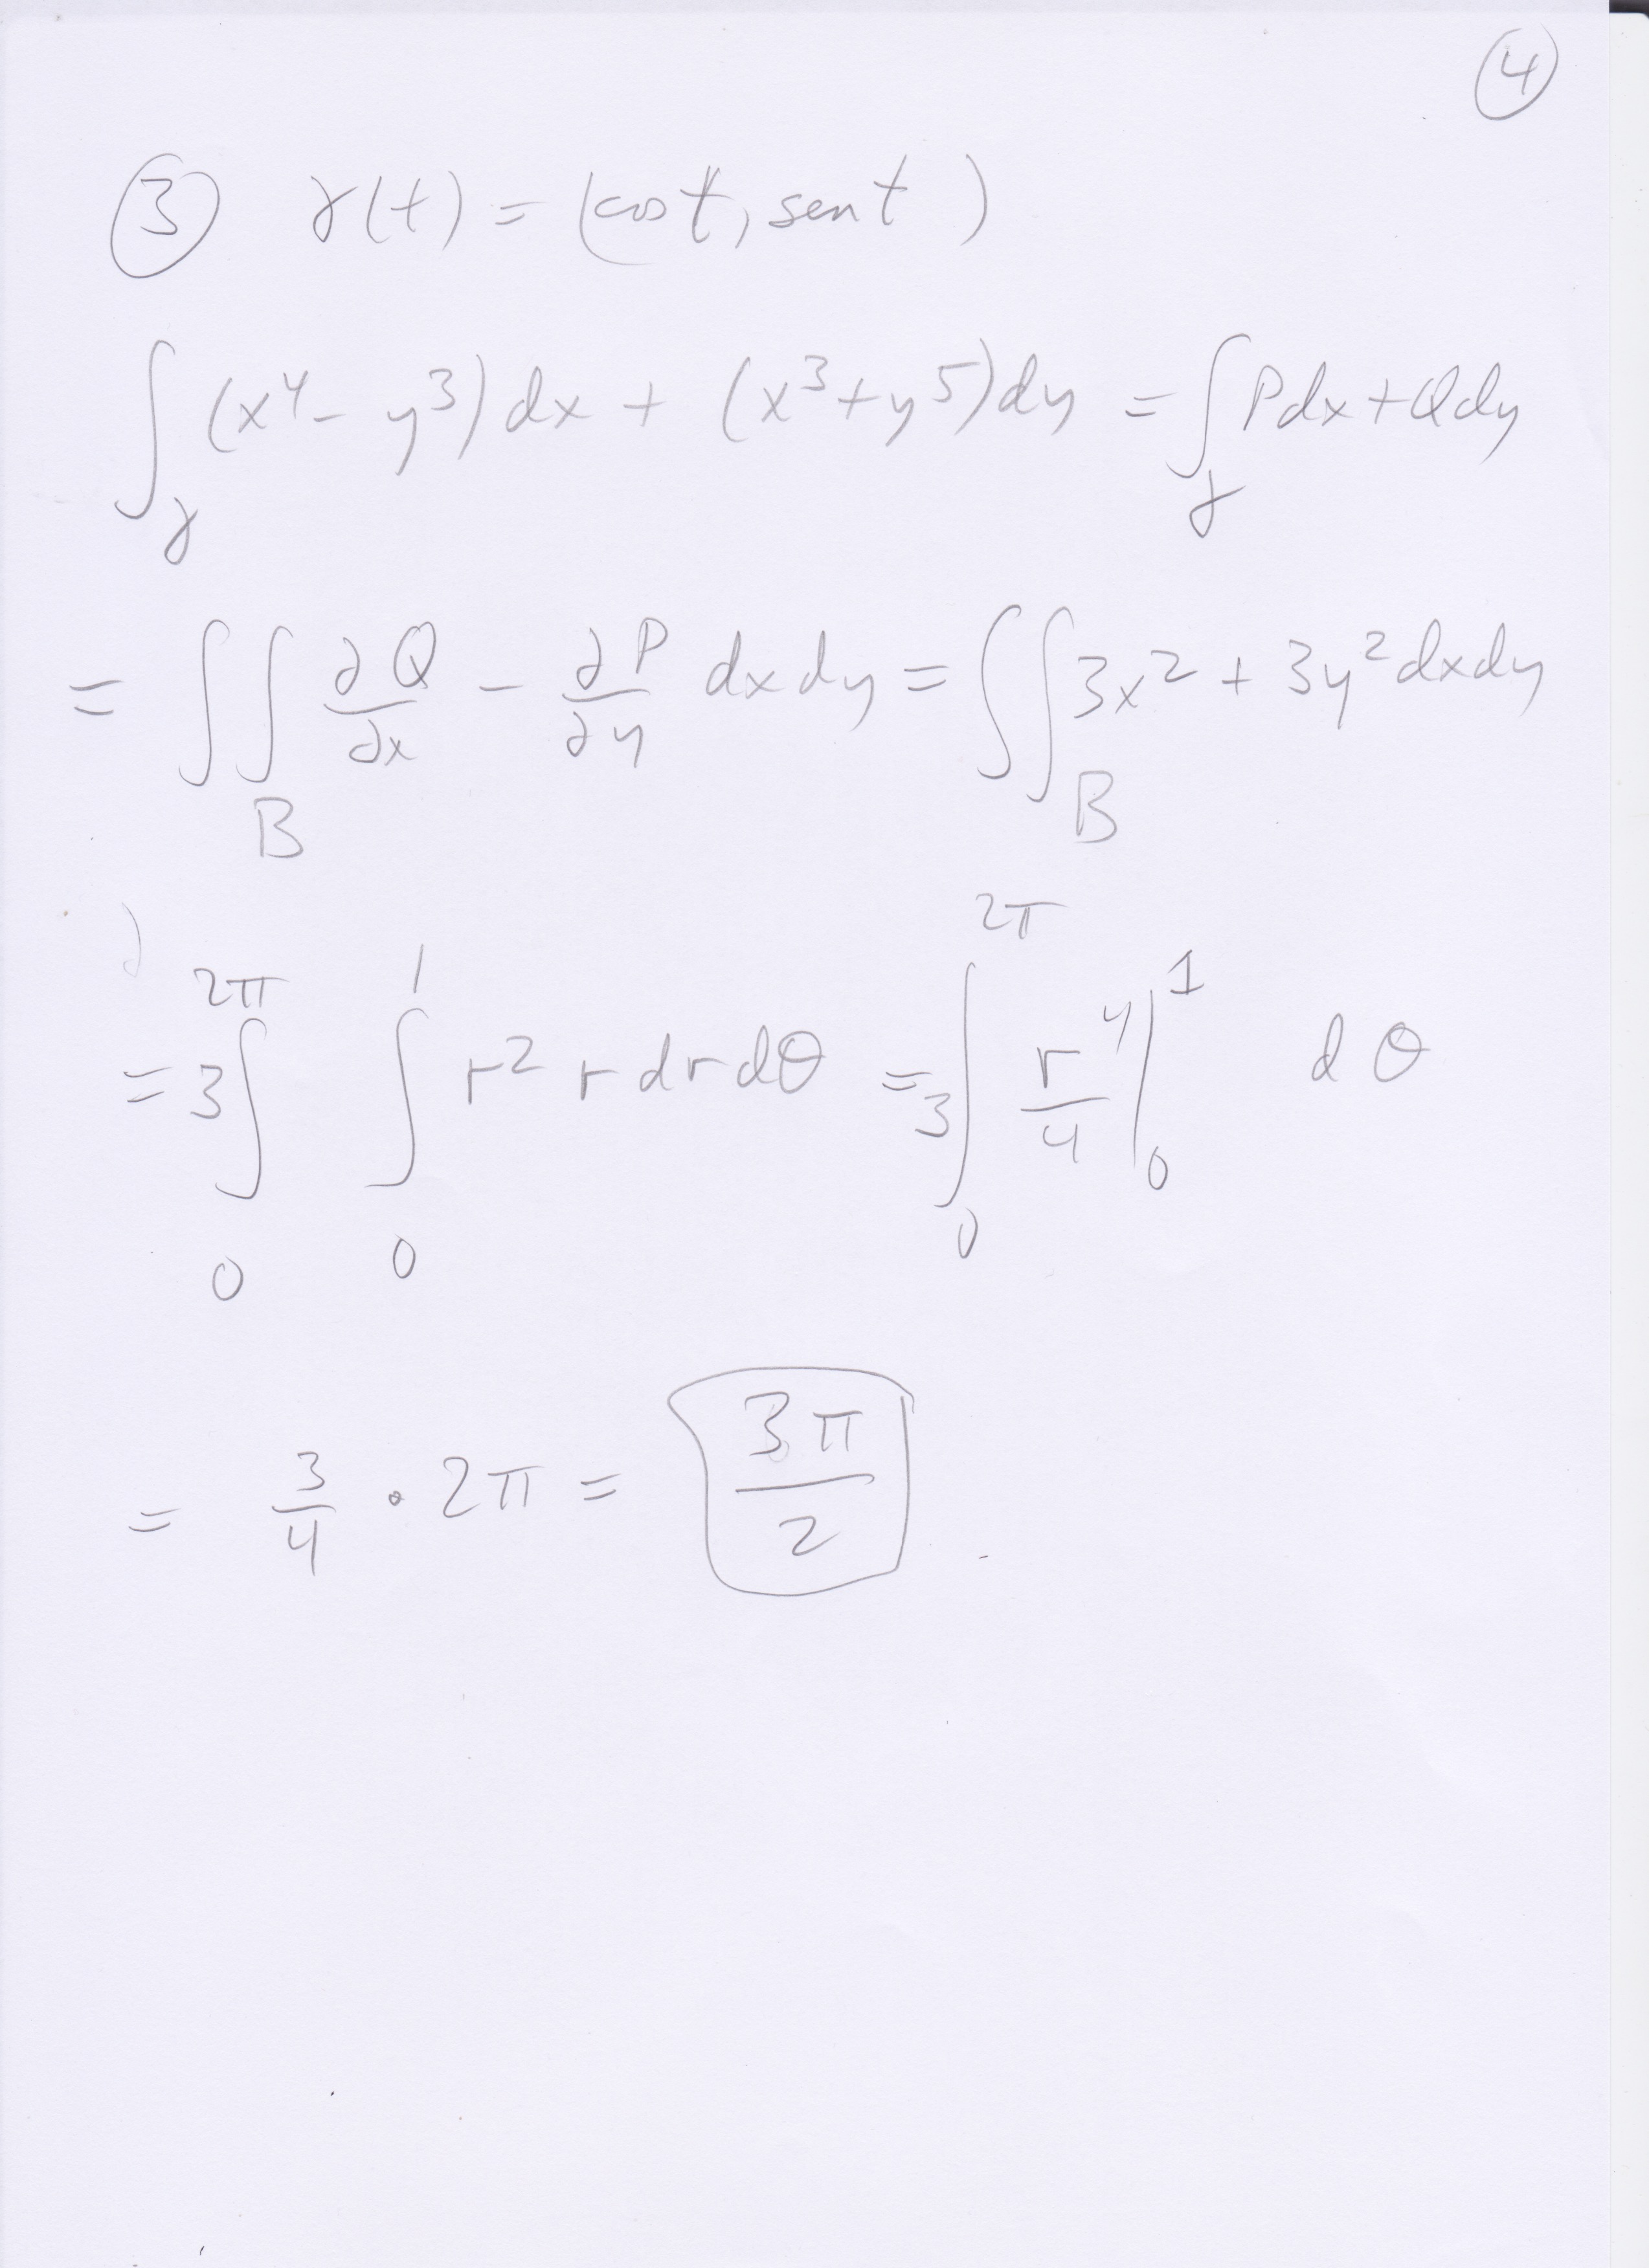 ④
③ γ(t) = (cos t, sen t)
∫_γ (x⁴ - y³) dx + (x³ + y⁵) dy = ∫_γ P dx + Q dy
= ∫∫_B ∂Q/∂x - ∂P/∂y dx dy = ∫∫_B 3x² + 3y² dx dy
= 3 ∫_0^{2π} ∫_0^1 r² r dr dθ = 3 ∫_0^{2π} r⁴/4 |_0^1 dθ
= 3/4 • 2π = 3π/2